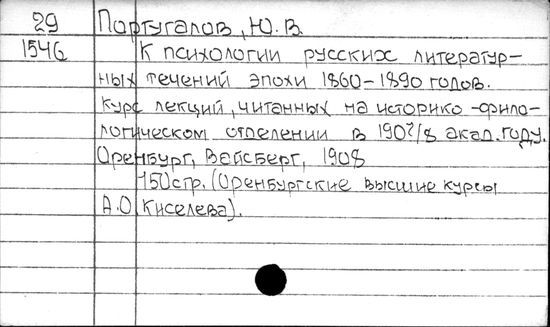 29 Португалов, Ю. В.
1546 К психологии русских литератур-
ных течений эпохи 1860-1890 годов.
Курс лекций, читанных на историко-фило-
логическом отделении в 190?/8 акад. году.
Оренбург, Вайсберг, 1908
150стр. (Оренбургские высшие курсы
А.О Киселева).